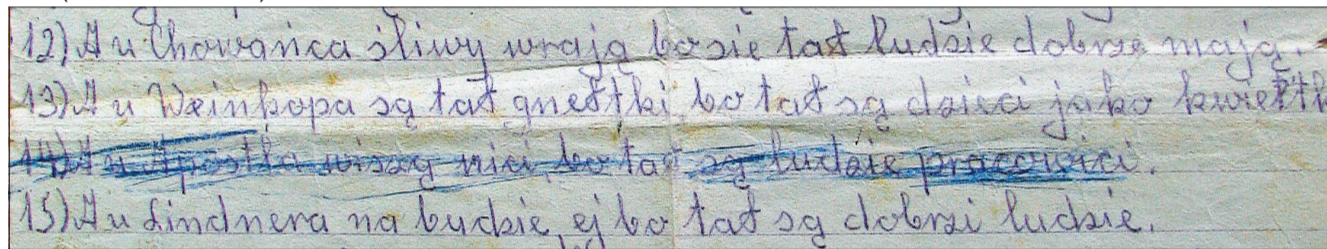 12) A u Chowańca śliwy wrają bo sie tat ludzie dobrze mają.
13) A u Weinkopa są tat bo tat są dzieci jako
14) A u Apostła wiszą nici, bo tat są ludzie pracowici.
15) A u Lindnera na budzie, ej bo tat są dobrzi ludzie.